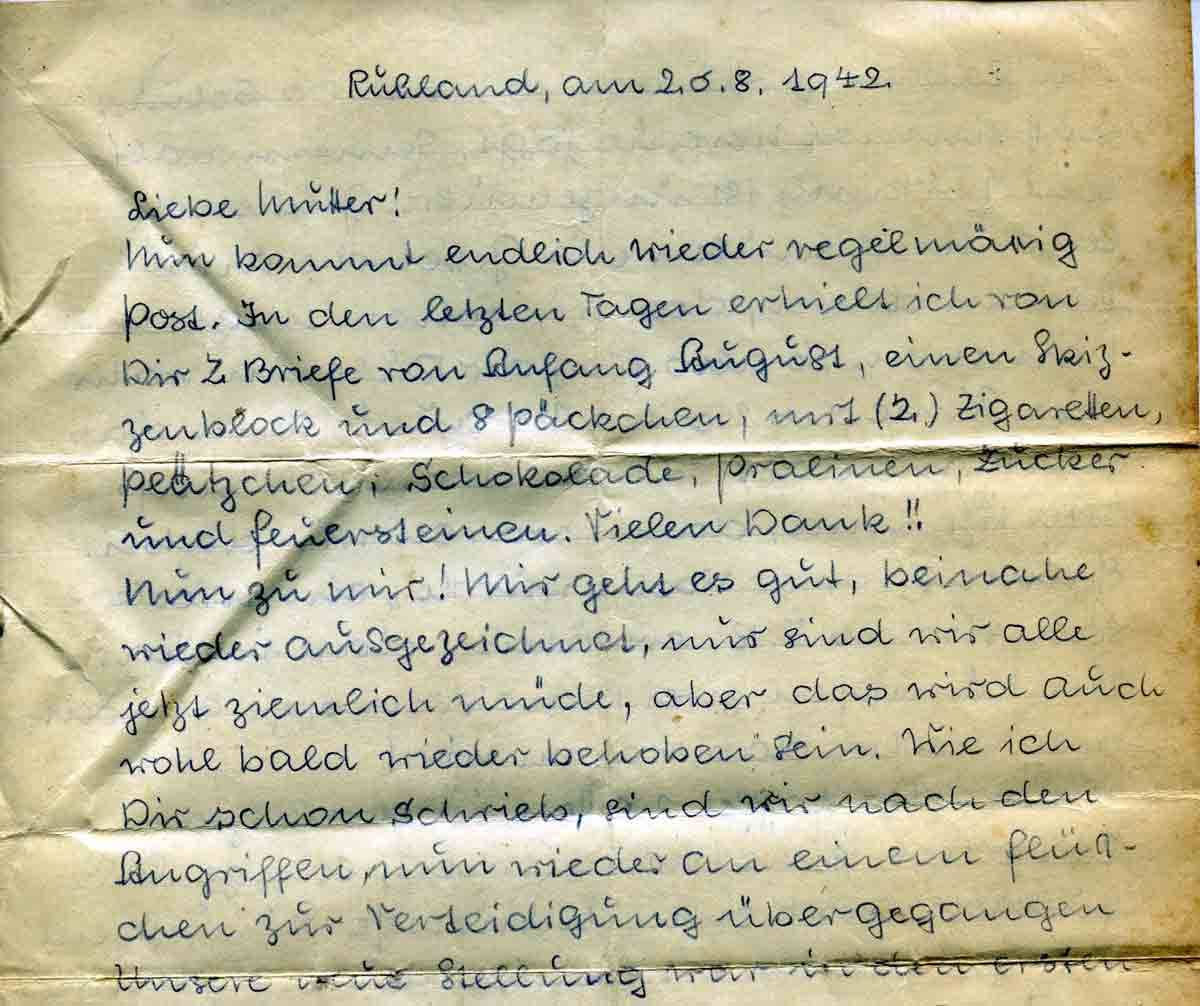 Rußland, am 26.8. 1942.
Liebe Mutter!
Nun kommt endlich wieder regelmäßig
Post. In den letzten Tagen erhielt ich von
Dir 2 Briefe von Anfang August, einen Skiz-
zenblock und 8 Päckchen, mit (2.) Zigaretten,
Plätzchen, Schokolade, Pralinen, Zucker
und Feuersteinen. Vielen Dank!!
Nun zu mir! Mir geht es gut, beinahe
wieder ausgezeichnet, nur sind wir alle
jetzt ziemlich müde, aber das wird auch
wohl bald wieder behoben sein. Wie ich
Dir schon schrieb, sind wir nach den
Angriffen, nun wieder an einem Flüß-
chen zur Verteidigung übergegangen
Unsere neue Stellung war in den ersten